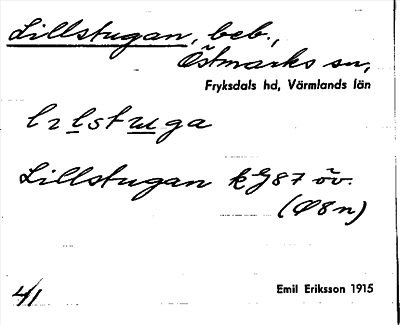 Lillstugan, beb.,
Östmarks sn,
Fryksdals hd, Värmlands län
lılstuga
Lillstugan kG87 öv.
(Ø8n)
4/1
Emil Eriksson 1915